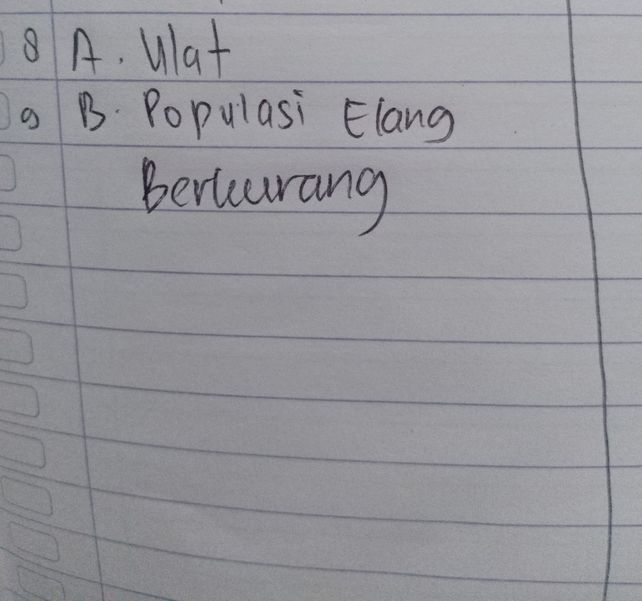 8 A. Ulat
9 B. Populasi Elang
Berkurang